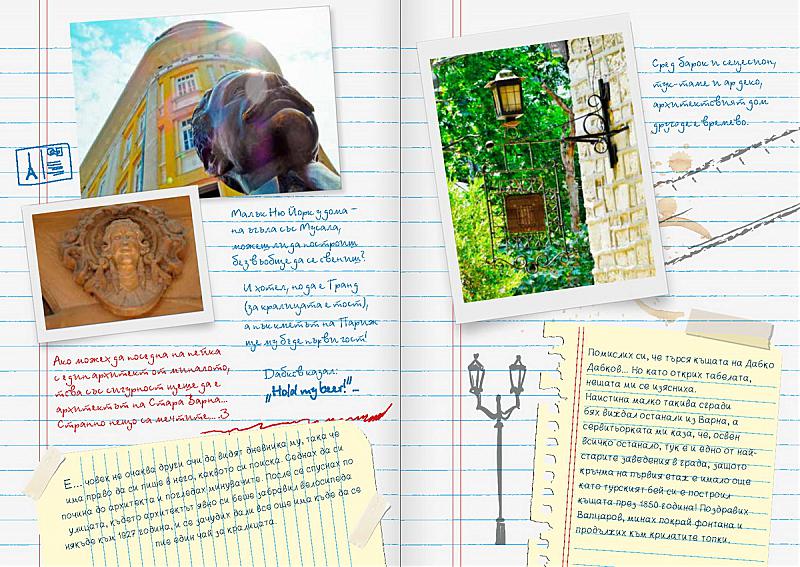 Малък Ню Йорк у дома –
на ъгъла със Мусала,
можеш ли да построиш
без въобще да се свениш?
И хотел, но да е Гранд
(за кралицата е тост),
а пък кметът на Париж
ще му бъде първи гост!
Дабков казал:
„Hold my beer!“...
Ако можех да поседна на пейка
с един архитект от миналото,
това със сигурност щеше да е
архитектът на Стара Варна...
Странно нещо са мечтите... :3
Е... човек не очаква други очи да видят дневника му, така че
има право да си пише в него, каквото си поиска. Седнах да си
почина до архитекта и погледах минувачите. После се спуснах по
улицата, където архитектът явно си беше забравил велосипеда
някъде към 1927 година, и се зачудих дали все още има къде да се
пие един чай за кралицата.
Сред барок и сецесион,
тук-таме и ар деко,
архитектовият дом
другаде е времево.
Помислих си, че търся къщата на Дабко
Дабков... Но като открих табелата,
нещата ми се изясниха.
Наистина малко такива сгради
бях виждал останали из Варна, а
сервитьорката ми каза, че, освен
всичко останало, тук е и едно от най-
старите заведения в града, защото
кръчма на първия етаж е имало още
като турският бей си е построил
къщата през 1850 година! Поздравих
Вапцаров, минах покрай фонтана и
продължих към крилатите топки.